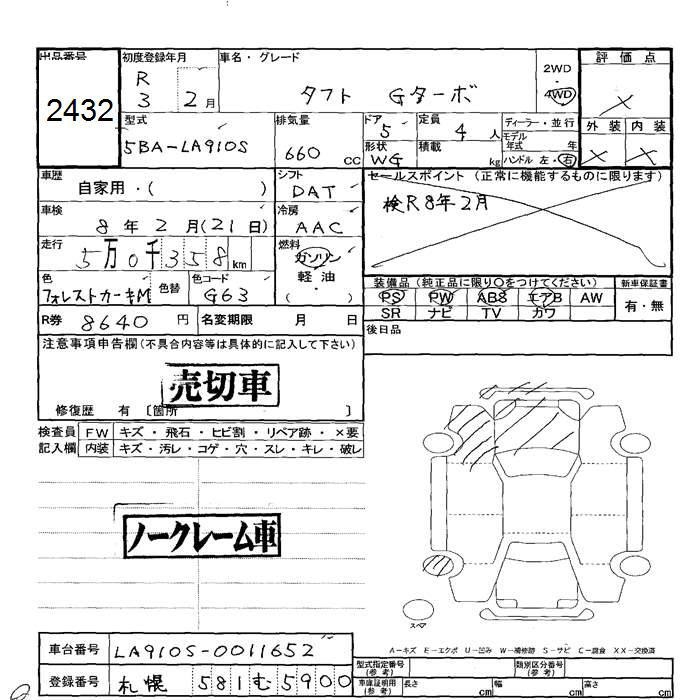 出品番号 初度登録年月 車名・グレード 2WD 評価点
2432 R 3 2月 タフト Gターボ 4WD ×
型式 排気量 ドア 5 定員 4人 ディーラー・並行 外装 内装
5BA-LA910S 660 cc 形状 WG 積載 kg モデル年式 年 ハンドル 左・右 × ×
車歴 シフト セールスポイント (正常に機能するものに限ります)
自家用・( ) DAT 検R8年2月
車検 冷房
8年2月(21日) AAC
走行 燃料
5万0千358km ガソリン
軽油
・( )
色 色替 色コード 装備品 (純正品に限り○をつけてください) 新車保証書
フォレストカーキM G63 PS PW ABS エアB AW 有・無
SR ナビ TV カワ
R券 8640円 名変期限 月 日 後日品
注意事項申告欄(不具合内容等は具体的に記入して下さい)
売切車
修復歴 有 〔箇所 〕
検査員 FW キズ・飛石・ヒビ割・リペア跡・×要
記入欄 内装 キズ・汚レ・コゲ・穴・スレ・キレ・破レ
ノークレーム車
スペア
A-キズ E-エクボ U-凹み W-補修跡 S-サビ C-腐食 XX-交換済
車台番号 LA910S-0011652 型式指定番号(参考) 類別区分番号(参考)
登録番号 札幌 581む5900 車庫証明用(参考) 長さ cm 幅 cm 高さ cm